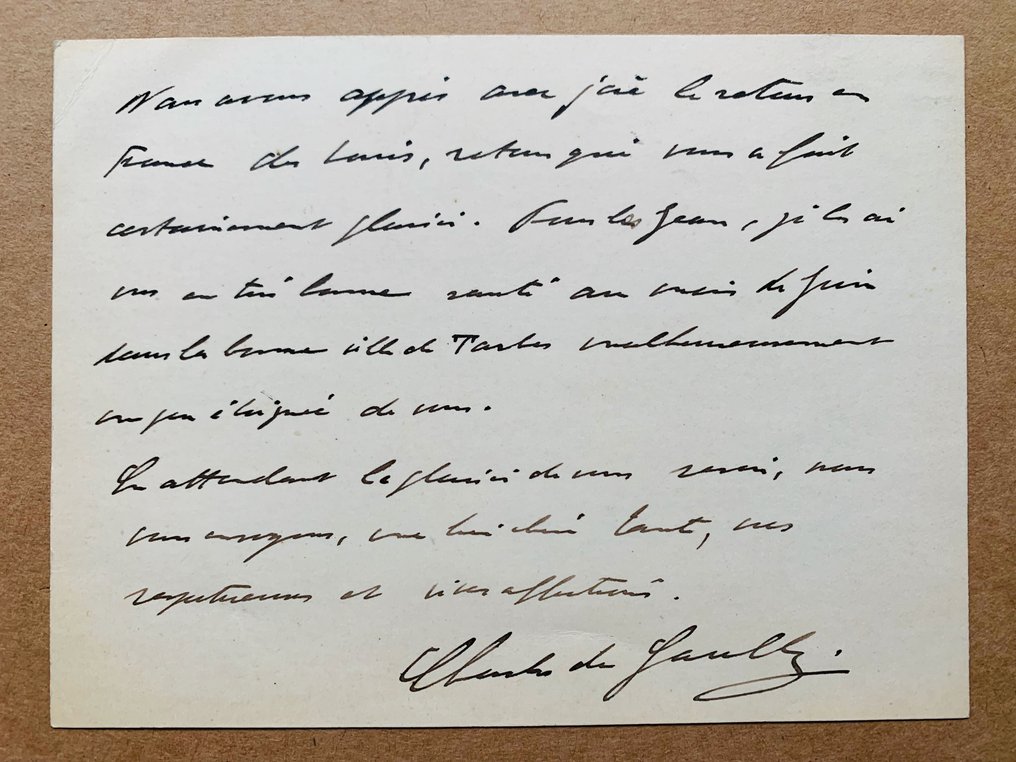 Nous avons appris avec joie le retour en
France des Louis, retour qui vous a fait
certainement plaisir. Tous les Jean, je les ai
vus en très bonne santé au mois de Juin
dans la bonne ville de Tarbes malheureusement
un peu éloignée de vous.
En attendant le plaisir de vous revoir, nous
vous envoyons, ma bien chère tante, nos
respectueuses et vives affections.
Charles de Gaulle.